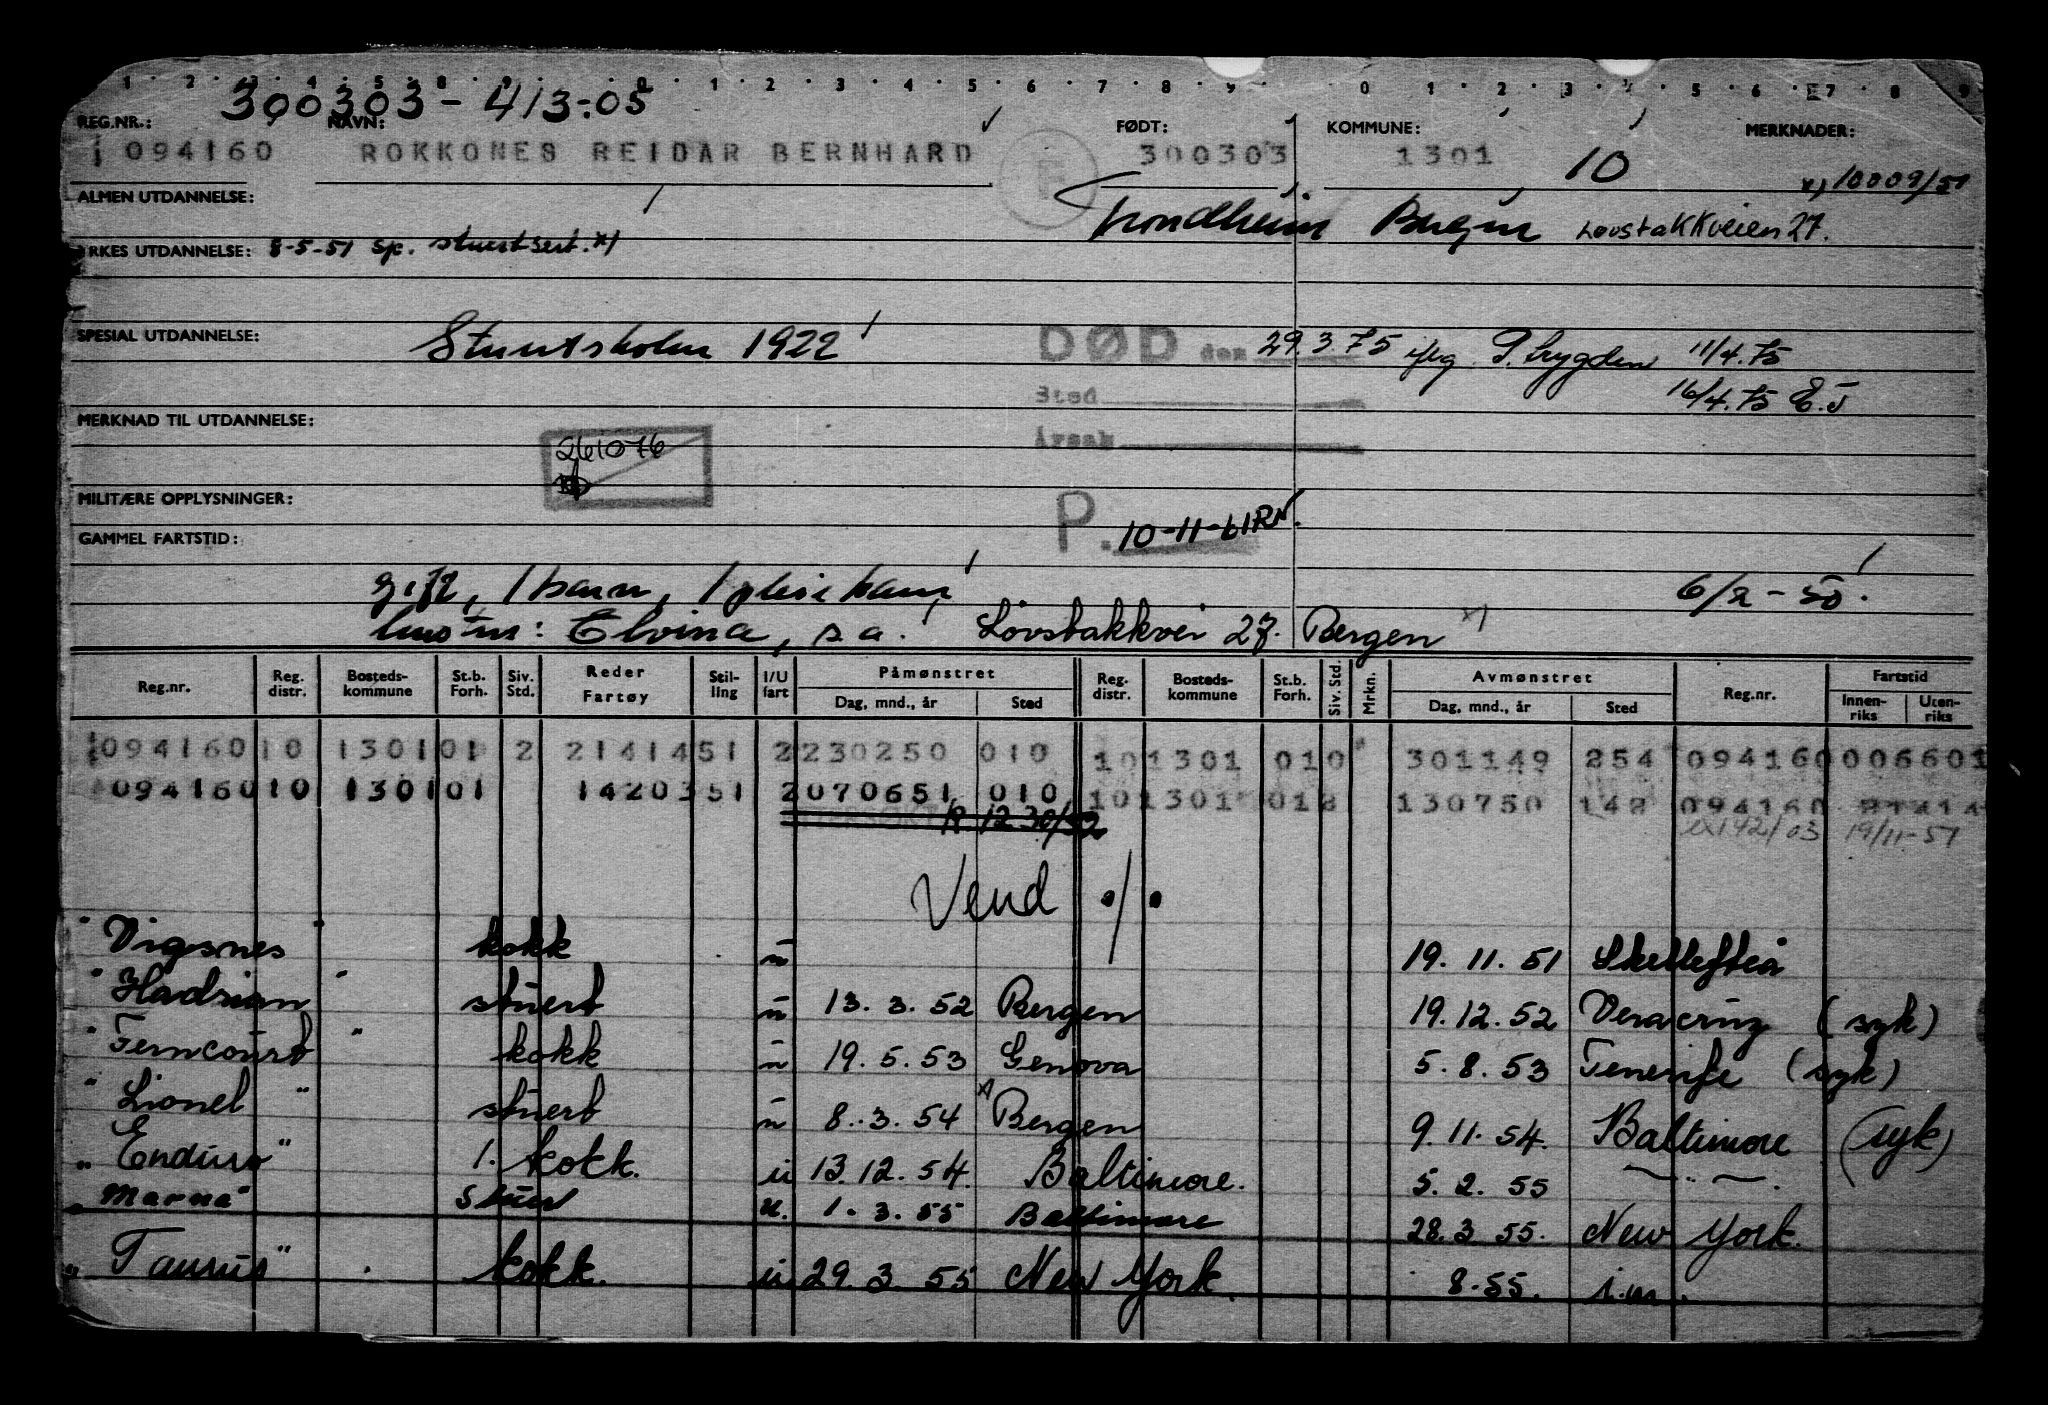 1 2 3 4 5 8 9 0 1 2 3 4 5 6 7 8 9 0 1 2 3 4 5 6 7 8 9
300303 - 413-05
REG.NR.: NAVN: FØDT: KOMMUNE: MERKNADER:
094160 ROKKONES REIDAR BERNHARD 300303 1301 10
x) 10009/51
ALMEN UTDANNELSE: Trondheim Bergen Løvstakkveien 27.
YRKES UTDANNELSE: 8-5-51 Sp. stuertsert. x)
SPESIAL UTDANNELSE: Stuertskolen 1922 DØD den 29.3.75 iflg P.trygden 11/4.75
Sted 16/4.75 E.J
MERKNAD TIL UTDANNELSE: Årsak
261076
MILITÆRE OPPLYSNINGER: P. 10-11-61 RN.
GAMMEL FARTSTID:
gift, 1 barn, 1 pleiebarn, 6/2-50.
hustru: Elvina, s.a. Løvstakkvei 27. Bergen x)
Reg.nr. Reg. distr. Bosteds-kommune St.b. Forh. Siv. Std. Reder Fartøy Stil-ling I/U fart Påmønstret Dag, mnd., år Sted Reg. distr. Bosteds-kommune St.b. Forh. Siv. Std. Mrkn. Avmønstret Dag, mnd., år Sted Reg.nr. Fartstid Innen-riks Uten-riks
094160 10 1301 01 2 2141451 2 230250 010 10 1301 010 301149 254 094160 006601
094160 10 1301 01 1420351 2 070651 010 10 1301 018 130750 142 094160
R 1230/52 142/03 19/11-51
Vend ./.
"Vigsnes" kokk u 19.11.51 Skellefteå
"Hadrian" stuert u 13.3.52 Bergen 19.12.52 Veracruz (syk)
"Ferncourt" kokk u 19.5.53 Genova 5.8.53 Tenerife (syk)
"Lionel" stuert u 8.3.54 Bergen 9.11.54. Baltimore (syk)
"Enduro" 1. kokk. u 13.12.54. Baltimore. 5.2.55 —"—.
"Marna" stuert u. 1.3.55 Baltimore 28.3 55. New York.
"Taurus" kokk. u 29.3.55 New York. 8-55. i.m.